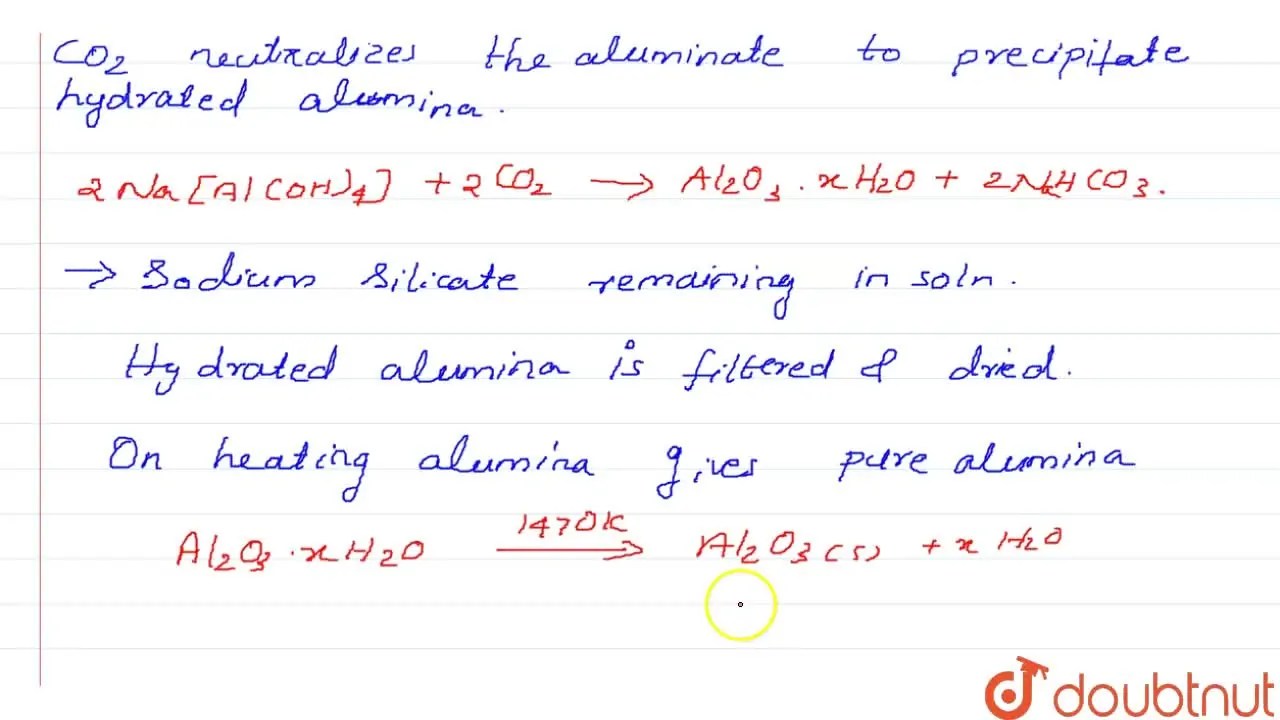 CO2 neutralizes the aluminate to precipitate
hydrated alumina.
2Na[Al(OH)4] + 2CO2 → Al2O3.xH2O + 2NaHCO3.
→ Sodium Silicate remaining in soln.
Hydrated alumina is filtered & dried.
On heating alumina gives pure alumina
Al2O3.xH2O 1470K → Al2O3(s) + x H2O
doubtnut